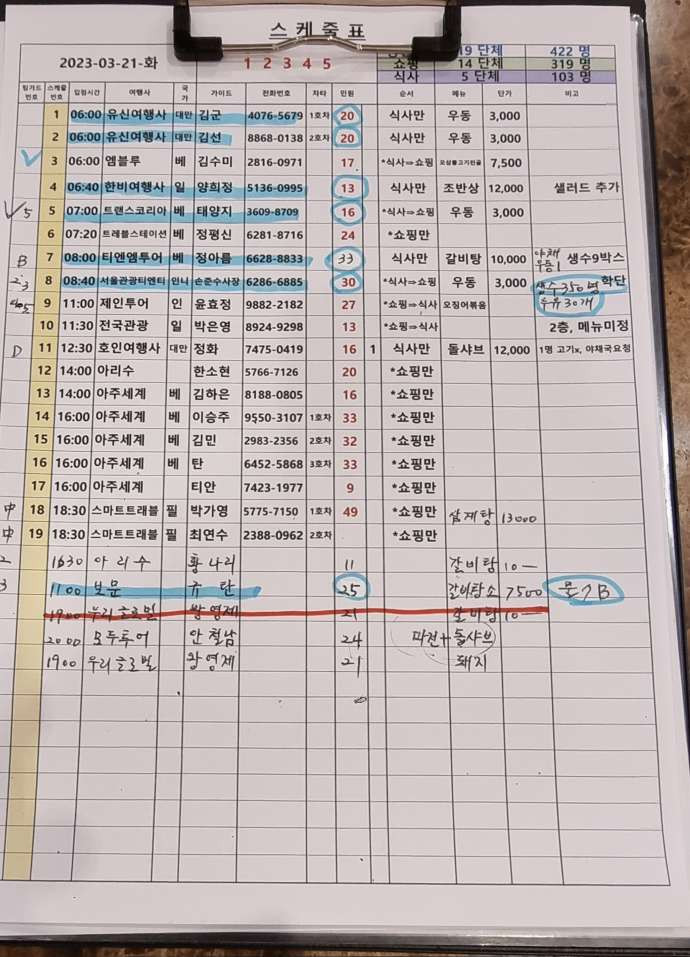 스케줄표
2023-03-21-화 1 2 3 4 5 19 단체 422 명
쇼핑 14 단체 319 명
식사 5 단체 103 명
팀카드번호 스케줄번호 입점시간 여행사 국가 가이드 전화번호 차타 인원 순서 메뉴 단가 비고
1 06:00 유신여행사 대만 김군 4076-5679 1호차 20 식사만 우동 3,000
2 06:00 유신여행사 대만 김선 8868-0138 2호차 20 식사만 우동 3,000
3 06:00 엠블루 베 김수미 2816-0971 17 *식사⇒쇼핑 오삼불고기전골 7,500
4 06:40 한비여행사 일 양희정 5136-0995 13 식사만 조반상 12,000 샐러드 추가
5 5 07:00 트랜스코리아 베 태양지 3609-8709 16 *식사⇒쇼핑 우동 3,000
6 07:20 트레블스테이션 베 정평신 6281-8716 24 *쇼핑만
B 7 08:00 티엔엠투어 베 정아름 6628-8833 33 식사만 갈비탕 10,000 야채우동1 생수9박스
2.3 8 08:40 서울관광티엔티 인니 손준수사장 6286-6885 30 *식사⇒쇼핑 우동 3,000 생수350 명 학단
9 11:00 제인투어 인 윤효정 9882-2182 27 *쇼핑⇒식사 오징어볶음 우유30개
10 11:30 전국관광 일 박은영 8924-9298 13 *쇼핑⇒식사 2층, 메뉴미정
D 11 12:30 호인여행사 대만 정화 7475-0419 16 1 식사만 돌샤브 12,000 1명 고기x, 야채국요청
12 14:00 아리수 한소현 5766-7126 20 *쇼핑만
13 14:00 아주세계 베 김하은 8188-0805 16 *쇼핑만
14 16:00 아주세계 베 이승주 9550-3107 1호차 33 *쇼핑만
15 16:00 아주세계 베 김민 2983-2356 2호차 32 *쇼핑만
16 16:00 아주세계 베 탄 6452-5868 3호차 33 *쇼핑만
17 16:00 아주세계 티안 7423-1977 9 *쇼핑만
中 18 18:30 스마트트래블 필 박가영 5775-7150 1호차 49 *쇼핑만 삼계탕 13000
中 19 18:30 스마트트래블 필 최연수 2388-0962 2호차 *쇼핑만
2 1630 아리수 황나리 11 갈비탕 10—
3 1100 보문 뀨탄 25 갈비탕소 7500 물2B
1900 우리글로벌 왕영제 21 갈비탕 10—
2000 모두투어 안철남 24 파전+돌샤브
1900 우리글로벌 왕영제 21 돼지